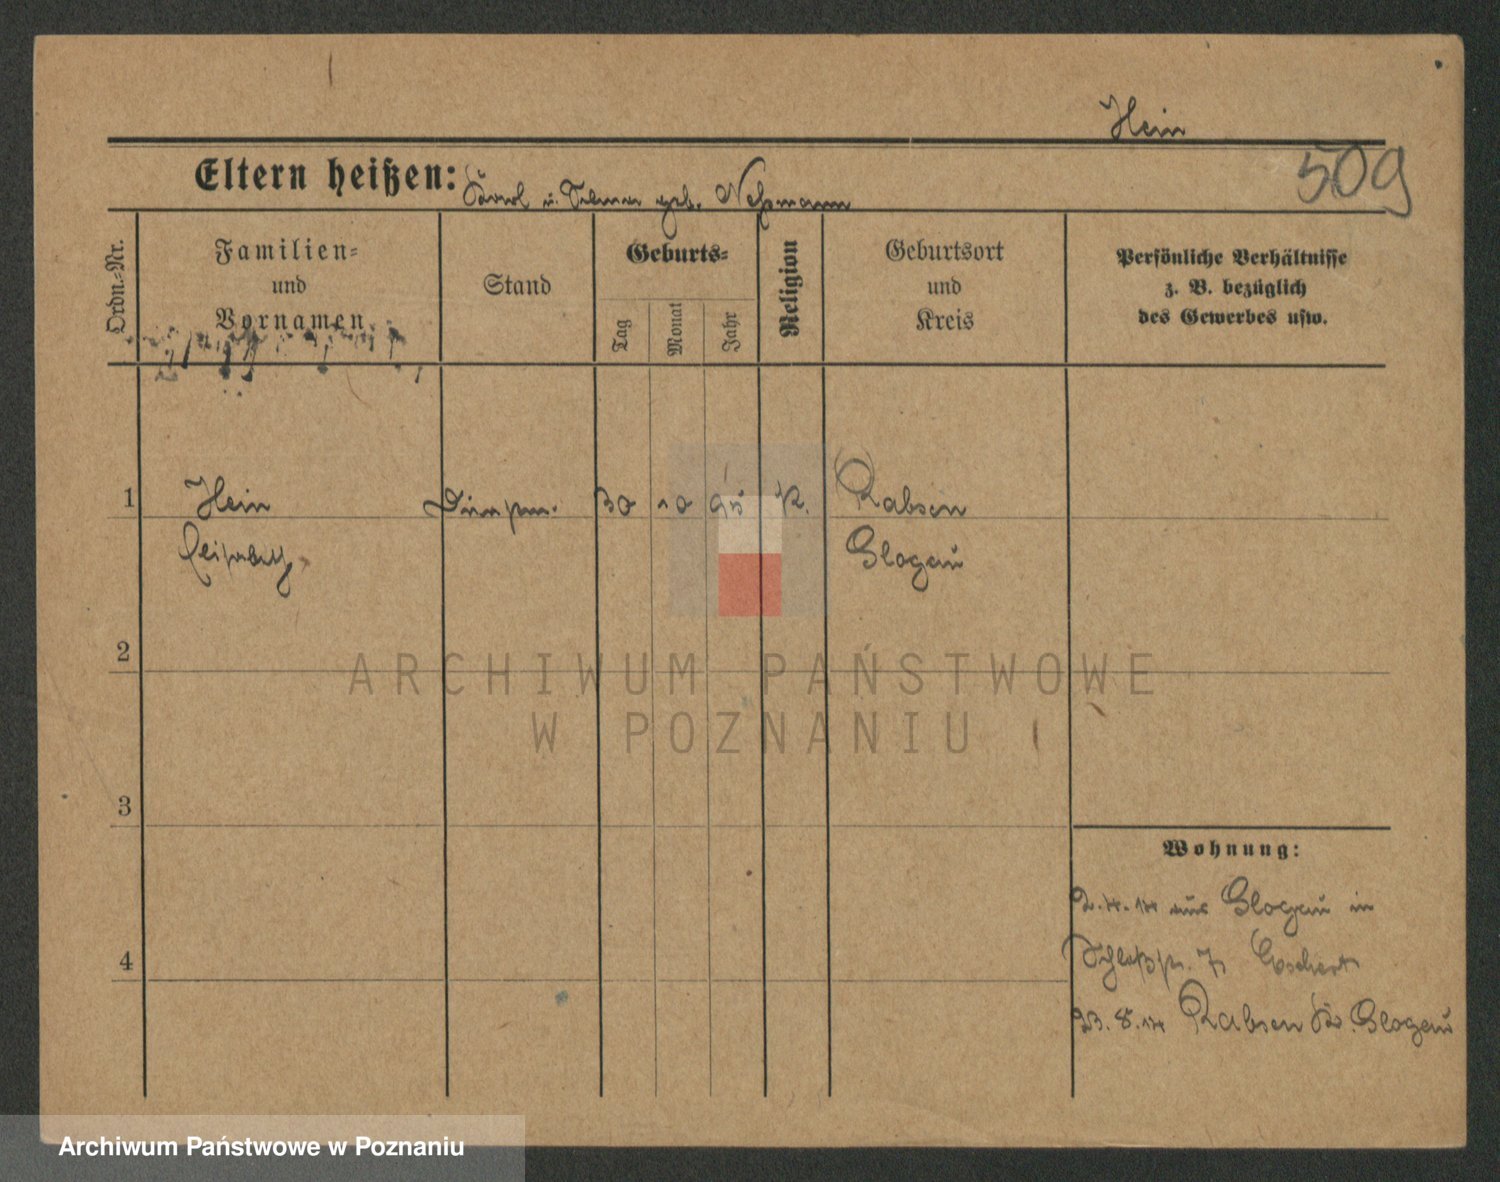 Hein
509
Eltern heißen: Karl u. Selma geb. Nehsmann
Ordn.-Nr.
Familien-
und
Vornamen
Stand
Geburts-
Tag
Monat
Jahr
Religion
Geburtsort
und
Kreis
Persönliche Verhältnisse
z. B. bezüglich
des Gewerbes usw.
1 Hein 30 10 95 K. Rabsen
Elisabeth Glogau
2
3
4
Wohnung:
2.4.14 aus Glogau in
Schloßstr. 7
23.8.14 Rabsen Kr. Glogau
ARCHIWUM PAŃSTWOWE
W POZNANIU
Archiwum Państwowe w Poznaniu